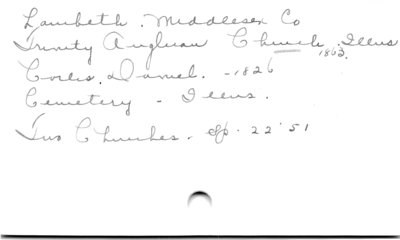 Lambeth. Middlesex Co
Trinity Anglican Church. Illus
1863.
Corlis. Daniel. - 1826
Cemetery - Illus.
Two Churches. Ap. 22 '51